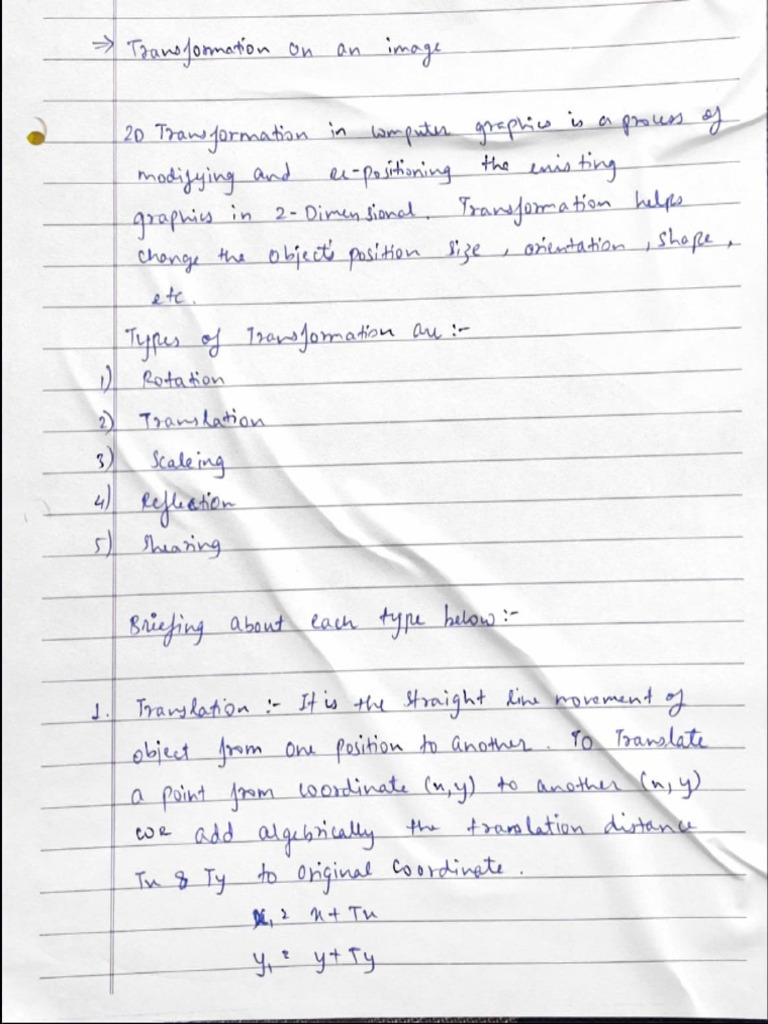 ⇒ Transformation on an image
2D Transformation in computer graphics is a process of
modifying and re-positioning the existing
graphics in 2-Dimensional. Transformation helps
change the object's position size, orientation, shape,
etc.
Types of Transformation are :-
1) Rotation
2) Translation
3) Scaleing
4) Reflection
5) Shearing
Briefing about each type below :-
1. Translation :- It is the straight line movement of
object from one position to another. To Translate
a point from coordinate (x, y) to another (x, y)
we add algebrically the translation distance
Tx & Ty to original coordinate.
x₁ = x + Tx
y₁ = y + Ty